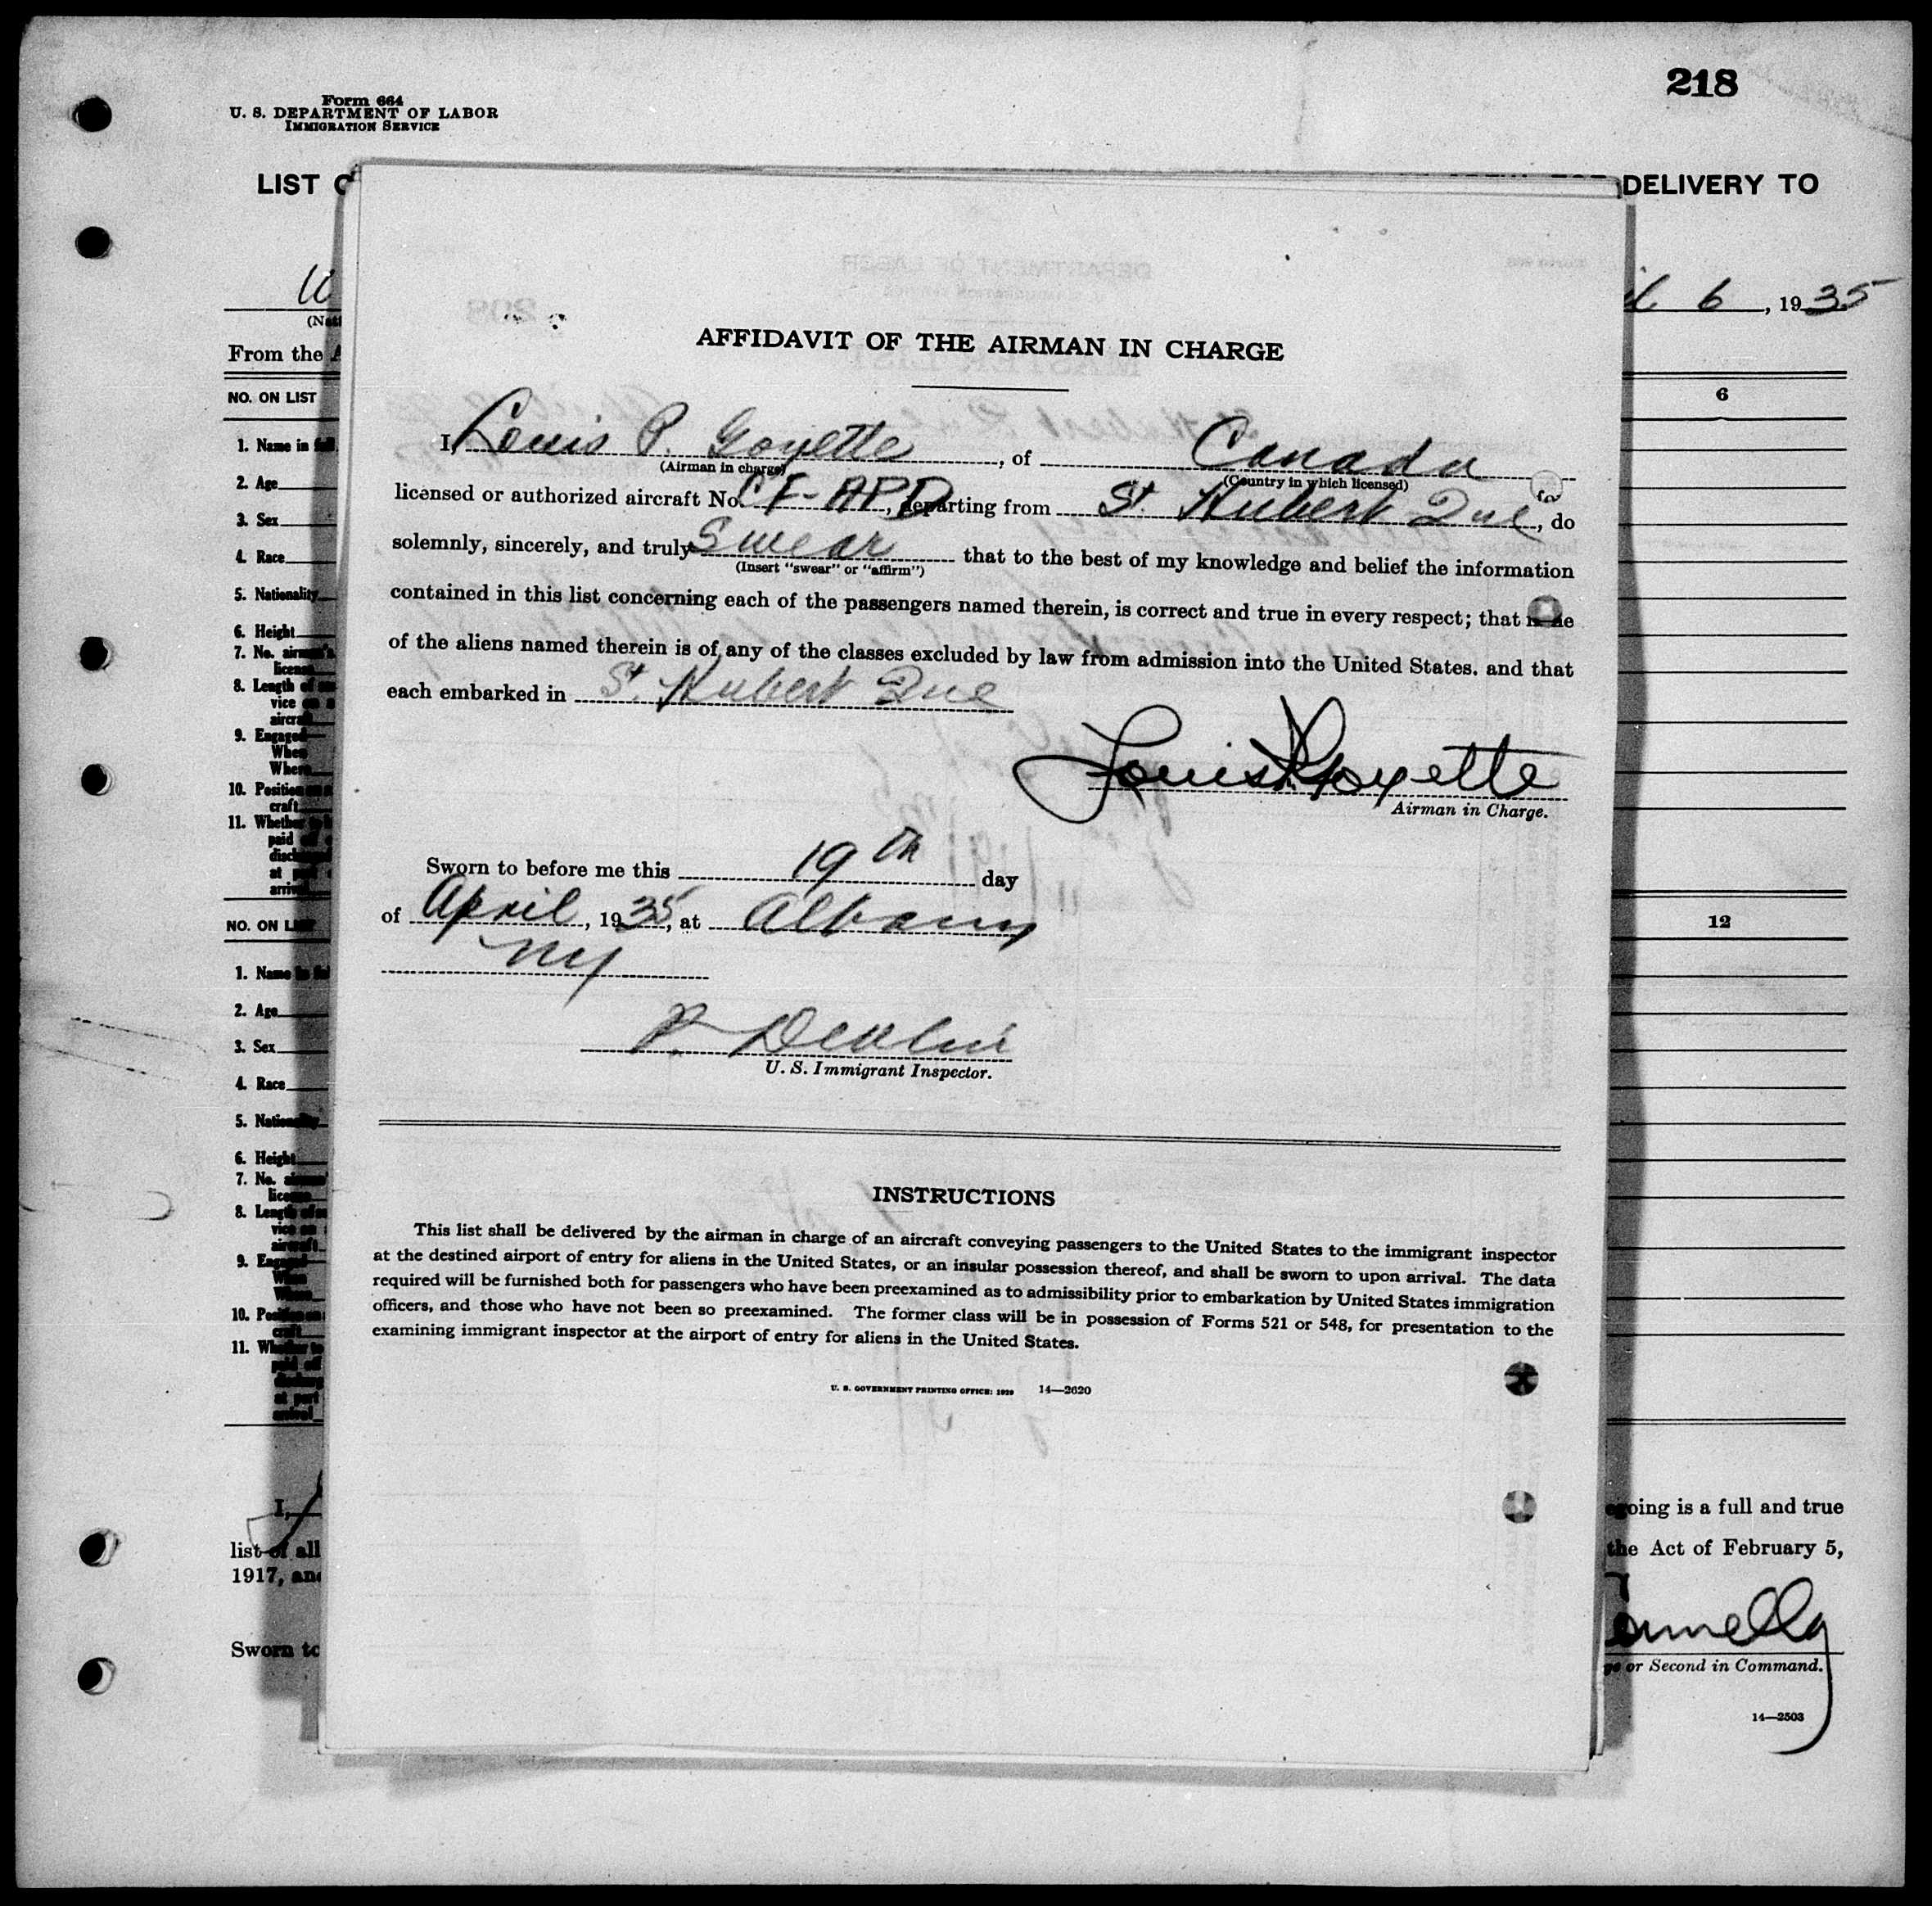 218
Form 664
U. S. DEPARTMENT OF LABOR
IMMIGRATION SERVICE
LIST
DELIVERY TO
6, 1935
From the
NO. ON LIST
6
1. Name in full
2. Age
3. Sex
4. Race
5. Nationality
6. Height
7. No. airman's
license
8. Length of
vice on
aircraft
9. Engaged
When
Where
10. Position
craft
11. Whether
paid
at
NO. ON LIST
12
1. Name
2. Age
3. Sex
4. Race
5. Nationality
6. Height
7. No.
license
8. Length of
vice on
aircraft
9. Engaged
When
Where
10. Position on
craft
11. Whether to
paid off
at port
AFFIDAVIT OF THE AIRMAN IN CHARGE
I, Louis P. Goyette, of Canada
(Airman in charge) (Country in which licensed)
licensed or authorized aircraft No. CF-APD, departing from St. Hubert Que, do
solemnly, sincerely, and truly Swear that to the best of my knowledge and belief the information
(Insert "swear" or "affirm")
contained in this list concerning each of the passengers named therein, is correct and true in every respect; that
of the aliens named therein is of any of the classes excluded by law from admission into the United States. and that
each embarked in St. Hubert Que
Louis P Goyette
Airman in Charge.
Sworn to before me this 19th day
of April, 1935, at Albany
NY
P. Devlin
U. S. Immigrant Inspector.
INSTRUCTIONS
This list shall be delivered by the airman in charge of an aircraft conveying passengers to the United States to the immigrant inspector
at the destined airport of entry for aliens in the United States, or an insular possession thereof, and shall be sworn to upon arrival. The data
required will be furnished both for passengers who have been preexamined as to admissibility prior to embarkation by United States immigration
officers, and those who have not been so preexamined. The former class will be in possession of Forms 521 or 548, for presentation to the
examining immigrant inspector at the airport of entry for aliens in the United States.
U. S. GOVERNMENT PRINTING OFFICE: 1929 14—2620
I,
going is a full and true
list of all
the Act of February 5,
1917, and
Sworn to
or Second in Command.
14—2503